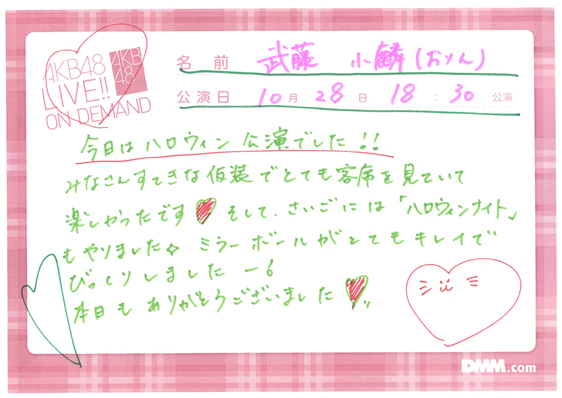 AKB48
LIVE!!
ON DEMAND
AKB
48
名前 武藤 小麟(おりん)
公演日 10月28日 18:30公演
今日はハロウィン公演でした!!
みなさんすてきな仮装でとても客席を見ていて
楽しかったです そして、さいごには「ハロウィンナイト」
もやりました☆ ミラーボールがとてもキレイで
びっくりしました
本日もありがとうございました
DMM.com